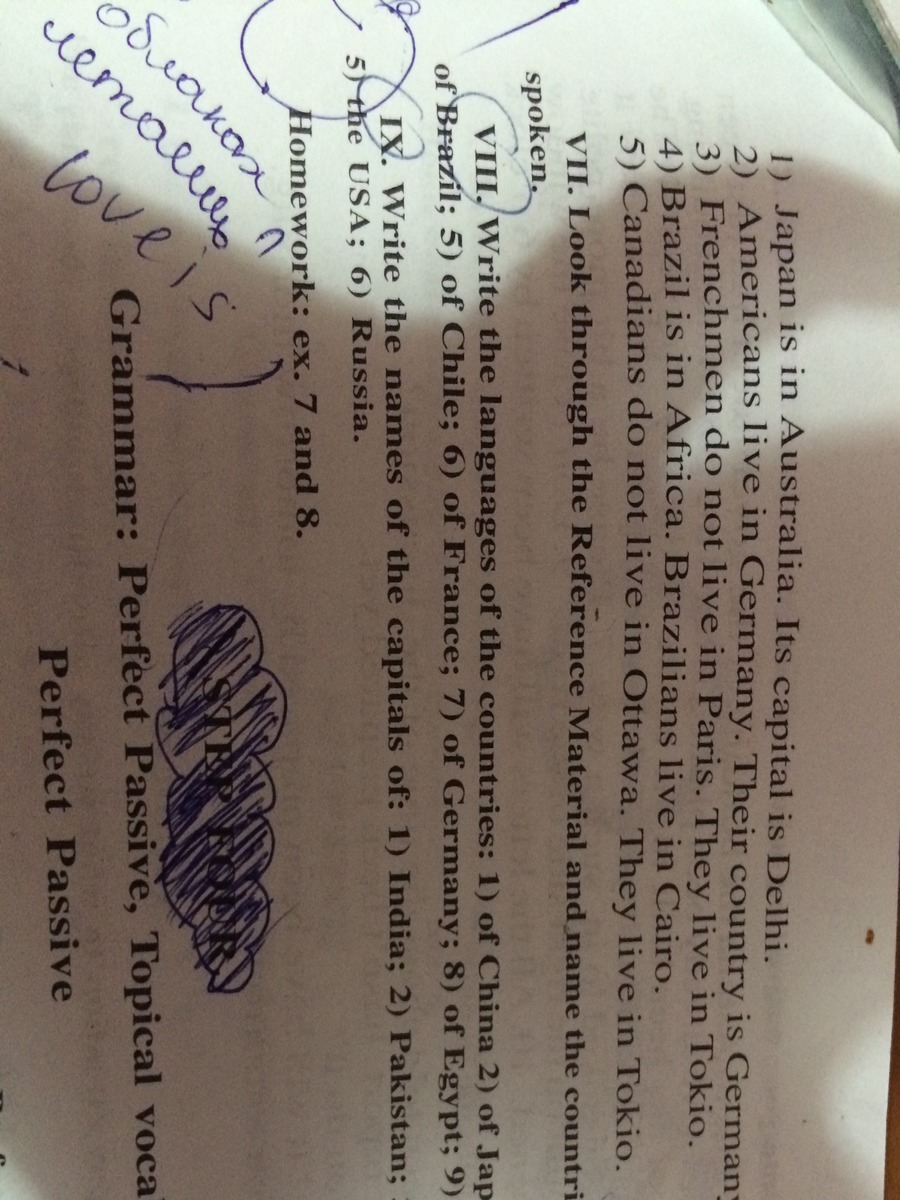 1) Japan is in Australia. Its capital is Delhi.
2) Americans live in Germany. Their country is German
3) Frenchmen do not live in Paris. They live in Tokio.
4) Brazil is in Africa. Brazilians live in Cairo.
5) Canadians do not live in Ottawa. They live in Tokio.
VII. Look through the Reference Material and name the countri
spoken.
VIII. Write the languages of the countries: 1) of China 2) of Jap
of Brazil; 5) of Chile; 6) of France; 7) of Germany; 8) of Egypt; 9)
IX. Write the names of the capitals of: 1) India; 2) Pakistan;
5) the USA; 6) Russia.
Homework: ex. 7 and 8.
STEP FOUR
Grammar: Perfect Passive, Topical voca
Perfect Passive
облаках
летаешь
love is